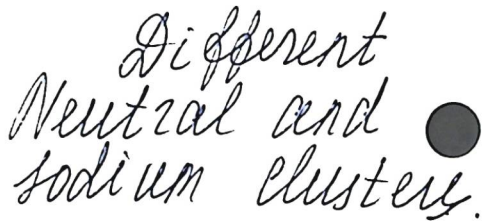 Different
Neutral and
sodium clusters.